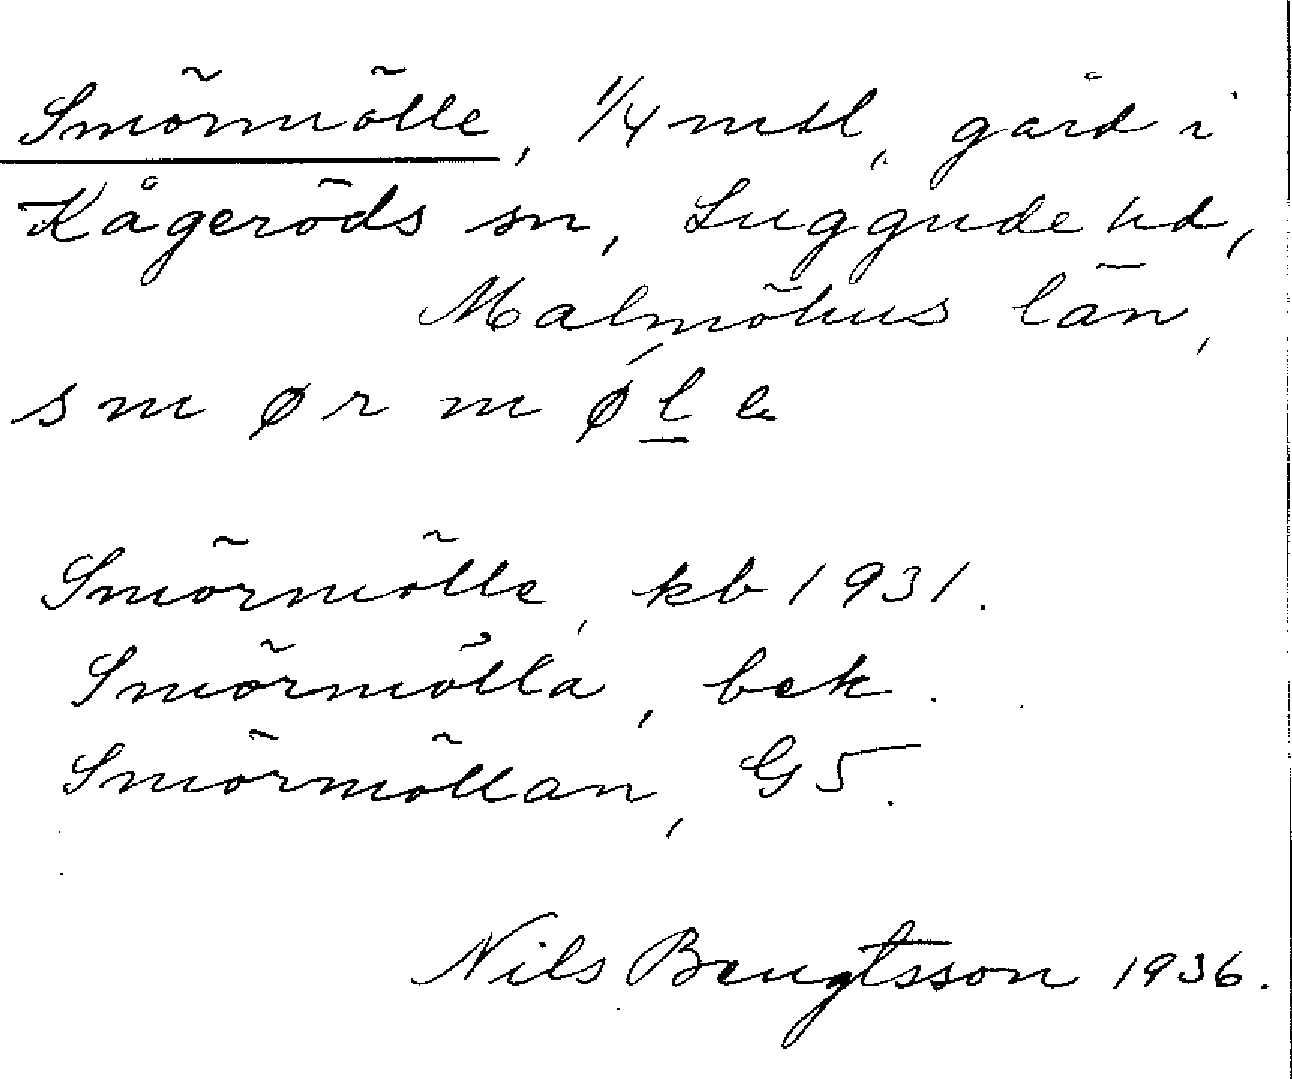 Smörmölle, 1/4 mtl, gård i
Kågeröds sn, Luggude hd,
Malmöhus län,
smørmøle
Smörmölle, kb 1931.
Smörmölla, bek.
Smörmöllan, G5.
Nils Bengtsson 1936.